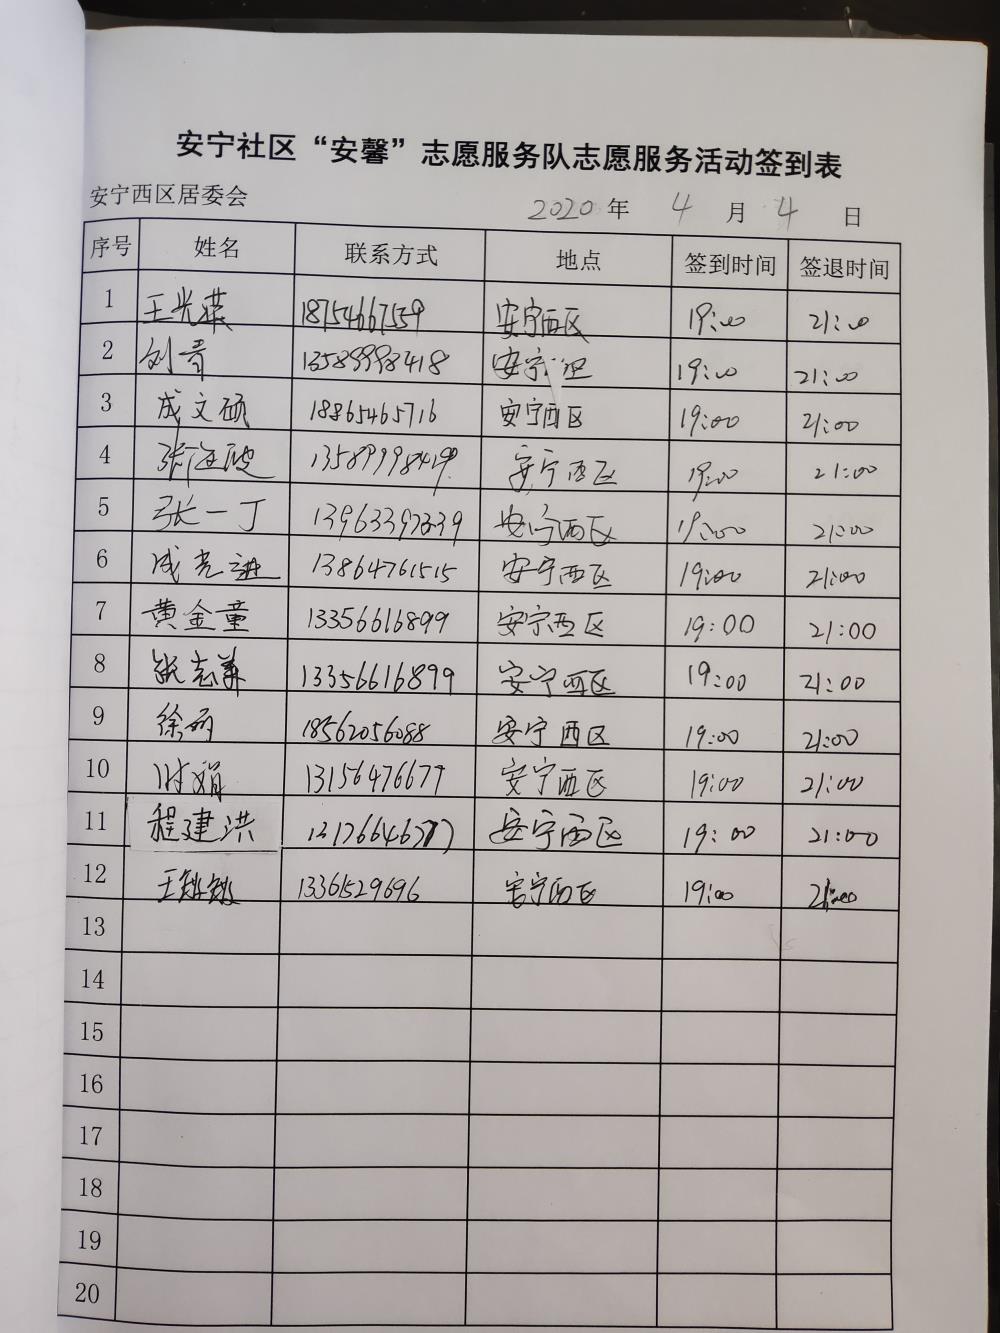 安宁社区“安馨”志愿服务队志愿服务活动签到表
安宁西区居委会 2020 年 4 月 4 日
序号 姓名 联系方式 地点 签到时间 签退时间
1 18754667559 安宁西区 19:00 21:00
2 刘青 13589998418 安宁西区 19:00 21:00
3 成文硕 18865465716 安宁西区 19:00 21:00
4 安宁西区 19:00 21:00
5 张一丁 安宁西区 19:00 21:00
6 成克进 13864761515 安宁西区 19:00 21:00
7 黄金童 13356616899 安宁西区 19:00 21:00
8 13356616899 安宁西区 19:00 21:00
9 徐丽 18562056088 安宁西区 19:00 21:00
10 时娟 13156476677 安宁西区 19:00 21:00
11 程建洪 安宁西区 19:00 21:00
12 王敏敏 13361529696 安宁西区 19:00 21:00
13
14
15
16
17
18
19
20